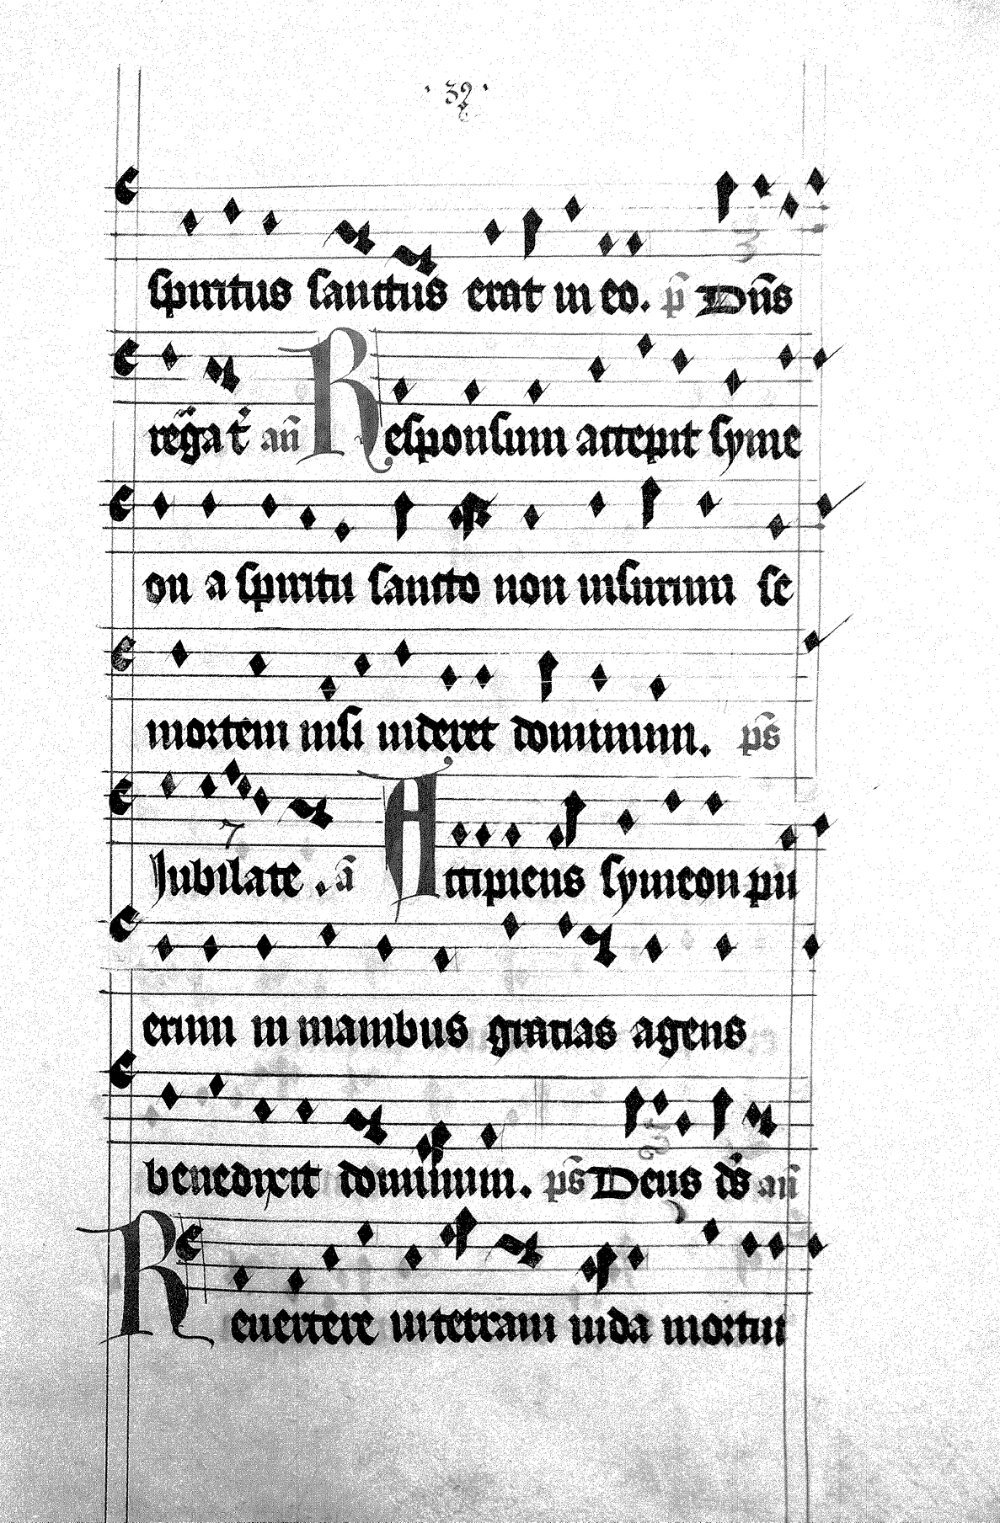 · 32 ·
spiritus sanctus erat in eo. ps̄ Dn̄s
regat an̄ Responsum accepit syme
on a spiritu sancto non uisurum se
mortem nisi uideret dominum. ps̄
Iubilate . ā Accipiens symeon pu
erum in manibus gratias agens
benedixit dominum. ps̄ Deus ds̄ an̄
Reuertere in terram iuda mortui